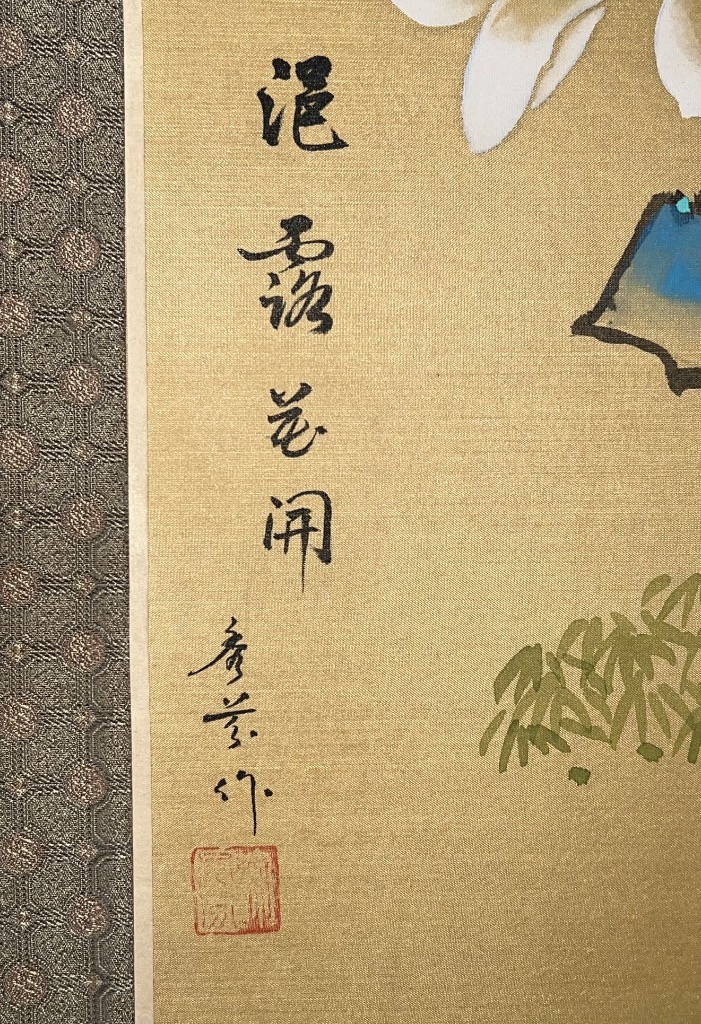 浥露花開
秀芬作